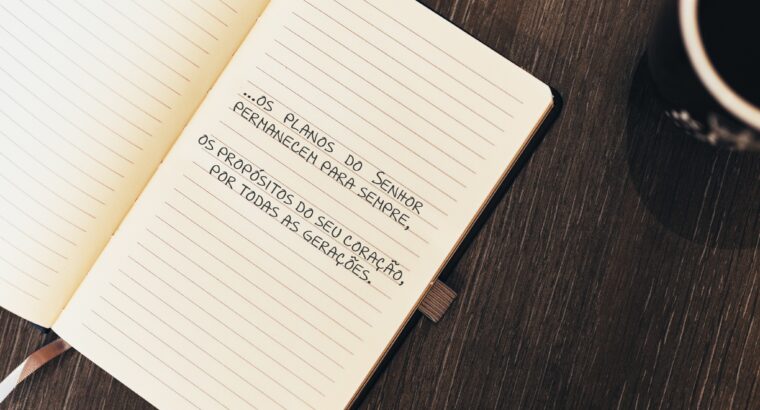 ...OS PLANOS DO SENHOR
PERMANECEM PARA SEMPRE,
OS PROPÓSITOS DO SEU CORAÇÃO,
POR TODAS AS GERAÇÕES.